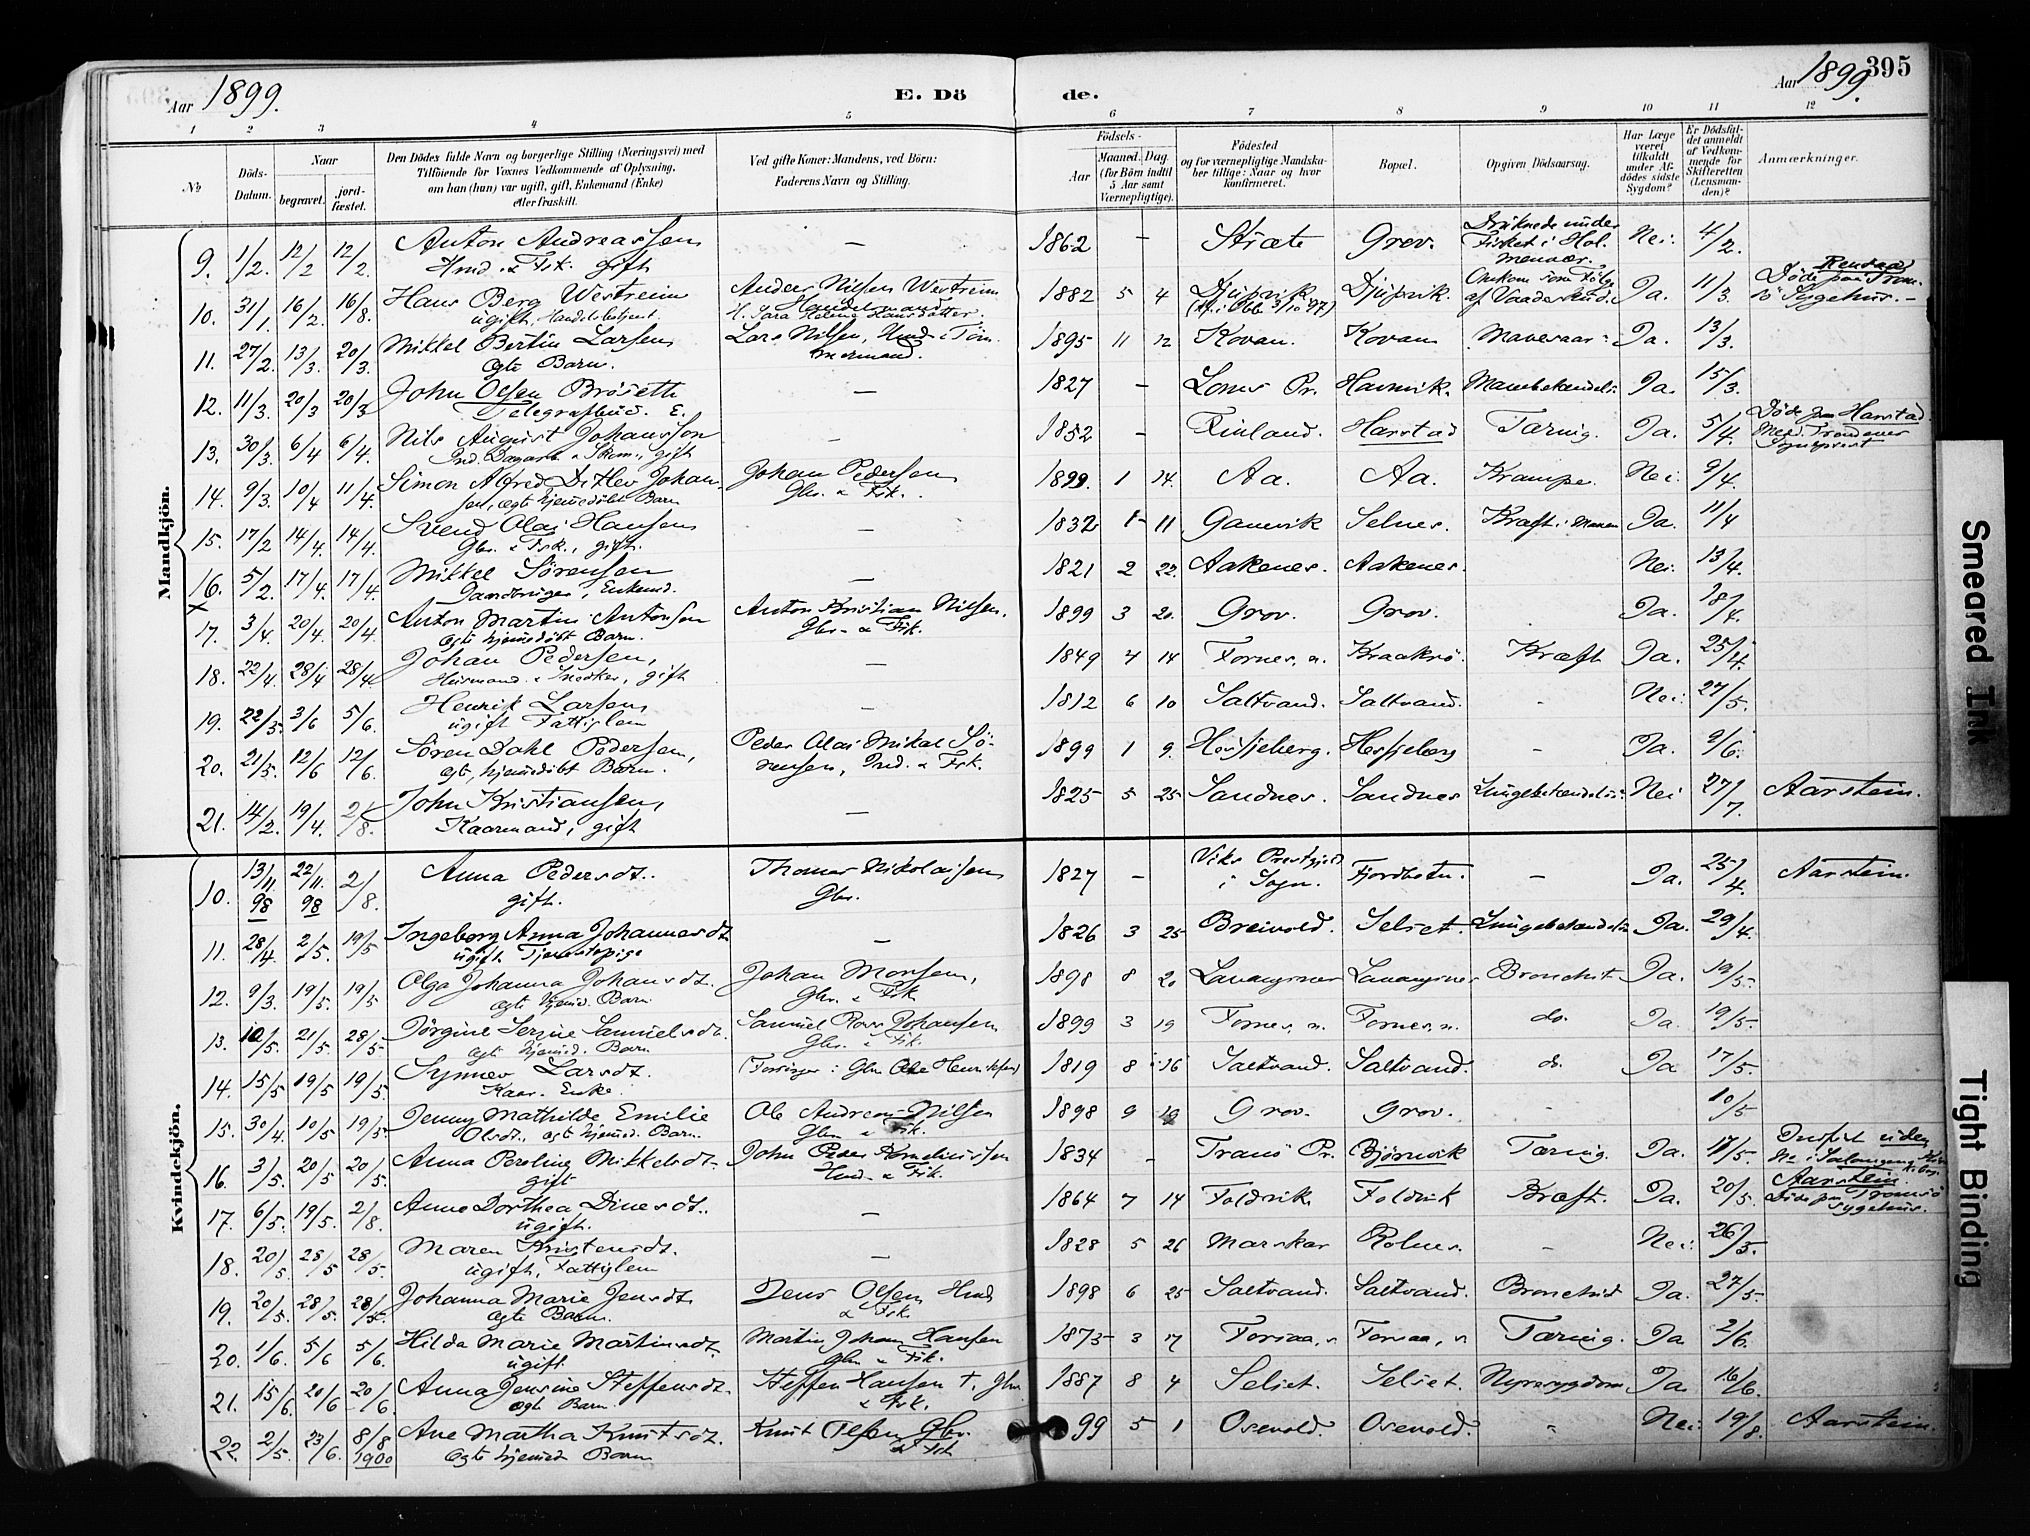 Aar 1899. E. Döde. Aar 1899. 395
1 2 3 4 5 6 7 8 9 10 11 12
No
Döds-Datum.
Naar
begravet.
jord-fæstet.
Den Dödes fulde Navn og borgerlige Stilling (Næringsvei) med
Tilföiende for Voxnes Vedkommende af Oplysning,
om han (hun) var ugift, gift, Enkemand (Enke)
eller fraskilt.
Ved gifte Koner: Mandens, ved Börn:
Faderens Navn og Stilling.
Födsels-
Aar
Maaned. Dag.
(for Börn indtil 5 Aar samt Værnepligtige).
Födested
og for værnepligtige Mandskaber tillige: Naar og hvor konfirmeret.
Bopæl.
Opgiven Dödsaarsag.
Har Læge været tilkaldt under Afdödes sidste Sygdom?
Er Dödsfaldet anmeldt af Vedkommende for Skifteretten (Lensmanden)?
Anmærkninger.
Mandkjön.
9. 1/2. 12/2 12/2. Anton Andreassen — 1862 — Stræte Grov. Druknede under Fisket i Hol- Nei. 4/2.
& Fsk. gift
10. 31/1. 16/2. 16/8. Hans Berg Westreim Anders Nilsen Westreim 1882 5 4 Djupvik Djupvik. Ja. 11/3. Döde paa Tromsö Sygehus. —
ugift. Handelsbetjent.
11. 27/2. 13/3. 20/3. Mikkel Bertin Larsen Lars Nilsen, 1895 11 12 Kovan. Kovan Mavesaar Ja. 13/3.
ægte Barn.
12. 11/3. 20/3 20/3 John Olsen Bröseth — 1827 — Loms Pr. Havnvik. Ja. 15/3.
Telegrafbud. E.
13. 30/3. 6/4 6/4. Nils August Johansson — 1852 — Finland. Harstad Tæring. Ja. 5/4. Döde paa Harstad
gift
14. 9/3. 10/4 11/4. Simon Alfred Ditlev Johan- Johan Pedersen 1899. 1 14. Aa. Aa. Krampe. Nei. 9/4.
sen, ægte hjemmedöbt Barn Gbr. & Fsk.
15. 17/2 14/4. 14/4. Svend Olai Hansen — 1832 1 11 Ganevik Selnes. Kræft i Maven Ja. 11/4
Gbr. & Fsk., gift.
16. 5/2. 17/4. 17/4. Mikkel Sörensen — 1821 2 22. Aakenes. Aakenes. Nei. 13/4.
Enkemd.
17. 3/4. 20/4. 20/4. Anton Martin Antonsen Anton Kristian Nilsen. 1899 3 20. Grov. Grov. Ja. 18/4.
ægte hjemmedöbt Barn. Gbr. & Fsk.
18. 22/4. 28/4 28/4. Johan Pedersen, — 1849 4 14 Fornes, n. Kraakrö. Kræft Ja. 25/4.
Husmand & Snedker, gift
19. 22/5. 3/6 5/6. Henrik Larsen — 1812 6 10 Saltvand. Saltvand. - Nei. 27/5.
ugift Fattiglem
20. 21/5. 12/6 12/6. Sören Dahl Pedersen, Peder Olai Mikal Sö- 1899 1 9. Hesjeberg. Hesjeberg - Ja. 9/6.
ægte, hjemmedöbt Barn. rensen, Ind. & Fsk.
21. 14/2. 19/4. 2/8. John Kristiansen, — 1825 5 25 Sandnes. Sandnes Lungebetændelse Nei 27/7. Aarstein.
Kaarmand, gift
Kvindekjön.
10. 13/11 98 22/11. 98 2/8. Anna Pedersdt. Thomas Nikolaisen 1827 — Viks Prestgjeld i Sogn. Fjordbotn. — Ja. 25/4. Aarstein.
gift. Gbr.
11. 28/4. 2/5. 19/5 Ingeborg Anna Johannesdt — 1826 3 25 Breivold. Selset. Lungebetændelse Ja. 29/4.
ugift Tjenestepige
12. 9/3. 19/5. 19/5 Olga Johanna Johansdt. Johan Monsen, 1898 8 20 Lavangsnes Lavangsnes Bronchit Ja. 19/5.
ægte hjemmd. Barn. Gbr. & Fsk
13. 10/5. 21/5. 28/5 Jörgine Serine Samuelsdt. Samuel Johansen 1899 3 19 Fornes, n. Fornes, n. do. Ja. 19/5.
ægte hjemmd. Barn Gbr. & Fsk.
14. 15/5 19/5 19/5. Synnev Larsdt. 1819 8 16 Saltvand. Saltvand. do. Ja 17/5.
Kaar. Enke.
15. 30/4. 10/5 19/5. Jenny Mathilde Emilie Ole Andreas Nilsen 1898 9 Grov. Grov. - 10/5
Olsdt., ægte hjemmd. Barn. Gbr. & Fsk.
16. 3/5. 20/5 20/5. Anna Peroline Mikkelsdt. John Peder Korneliussen 1834 - Tranö Pr. Björnvik Tæring. Ja. 17/5.
gift & Fsk.
17. 6/5. 19/5. 2/8. Anne Dorthea Dinesdt. — 1864 7 14 Foldvik. Foldvik Kræft. Ja. 20/5. Aarstein. Döde paa Tromsö Sygehus.
ugift.
18. 20/5 28/5 28/5. Maren Kristensdt. — 1828 5 26 Rolnes. - Nei. 26/5.
ugift, Fattiglem
19. 20/5. 28/5. 28/5. Johanna Marie Jensdt. Jens Olsen 1898 6 25 Saltvand. Saltvand. Bronchit Ja. 27/5.
ægte Barn. & Fsk.
20. 1/6. 5/6 5/6. Hilda Marie Martinsdt. Martin Johan Hansen 1873 3 17 Forsaa, n Forsaa, n Tæring. Ja 2/6.
ugift Gbr. & Fsk.
21. 15/6. 20/6 20/6. Anna Jensine Steffensdt. Steffen Hansen †. Gbr. 1887 8 4 Selset. Selset. Nyresygdom Ja. 16/6.
ægte Barn & Fsk.
22. 2/5. 23/6. 8/8 1900 Ane Martha Knutsdt. Knut Olsen Gbr. 99 5 1 Osevold. Osevold. Nei. 19/8. Aarstein.
ægte hjemmd Barn & Fsk
Smeared Ink
Tight Binding